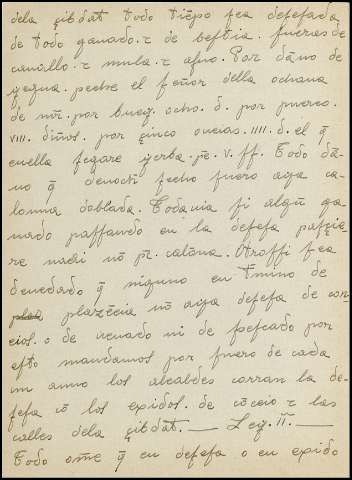 dela çibdat todo tiẽpo sea defesada
de todo ganado. τ de bestia. fueras de
cavallo. τ mula. τ asno. Por dãno de
yegua. peche el señor della ochaua
de mr̃. por buey. ocho. d. por puerco.
VIII. din̄os. por çinco oueias. IIII. d. el q̃
en ella segare yerba. pẽ. v. ss. Todo dã-
no q̃ denoch fecho fuero aya ca-
lonna doblada. Todauia si algũ ga-
nado passando en la defesa pasçie-
re nadi nõ pr̃. calõna. Otrossi sea
deuedado q̃ ninguno en t'mino de
plazẽcia nõ aya defesa de con-
eios. o de uenado ni de pescado por
esto mandamos por fuero de cada
un anno los alcaldes corran la de-
fesa cõ los exidos. de cõceio τ las
calles dela çibdat. — Ley. II. —
Todo om̃e q̃ en defesa o en exido